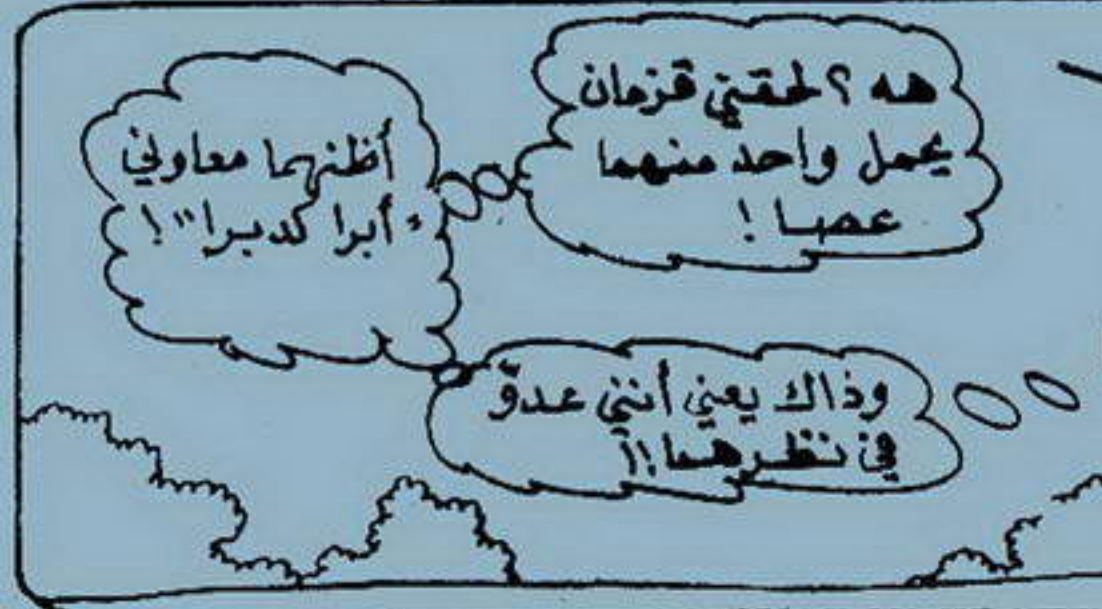 هه؟ لحقني قزمان
يحمل واحد منهما
عصا!
أظنهما معاوني
"أبرا كدبرا"!
وذاك يعني أنني عدوّ
في نظرهما!!